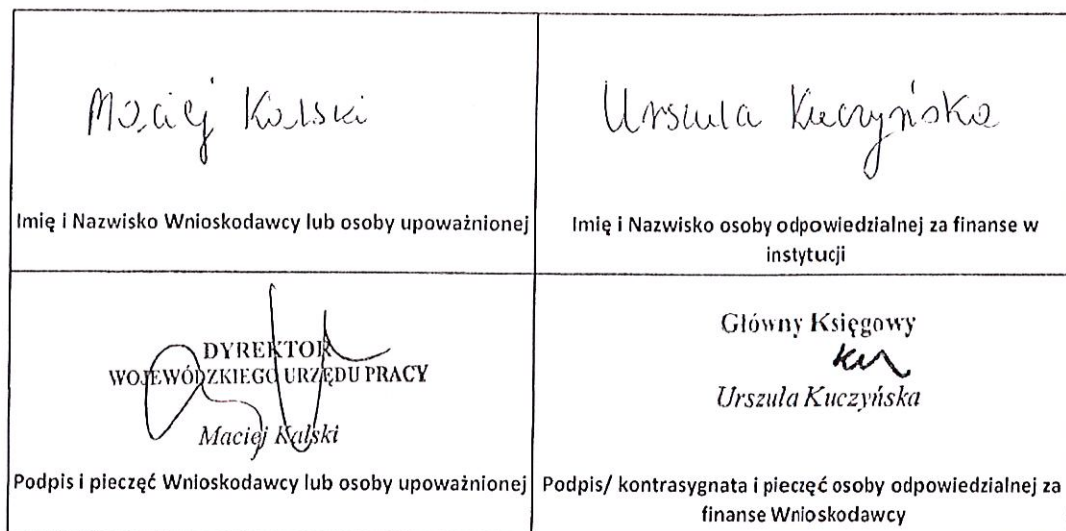 Maciej Kalski
Urszula Kuczyńska
Imię i Nazwisko Wnioskodawcy lub osoby upoważnionej
Imię i Nazwisko osoby odpowiedzialnej za finanse w
instytucji
DYREKTOR
WOJEWÓDZKIEGO URZĘDU PRACY
Maciej Kalski
Podpis i pieczęć Wnioskodawcy lub osoby upoważnionej
Główny Księgowy
Urszula Kuczyńska
Podpis/ kontrasygnata i pieczęć osoby odpowiedzialnej za
finanse Wnioskodawcy